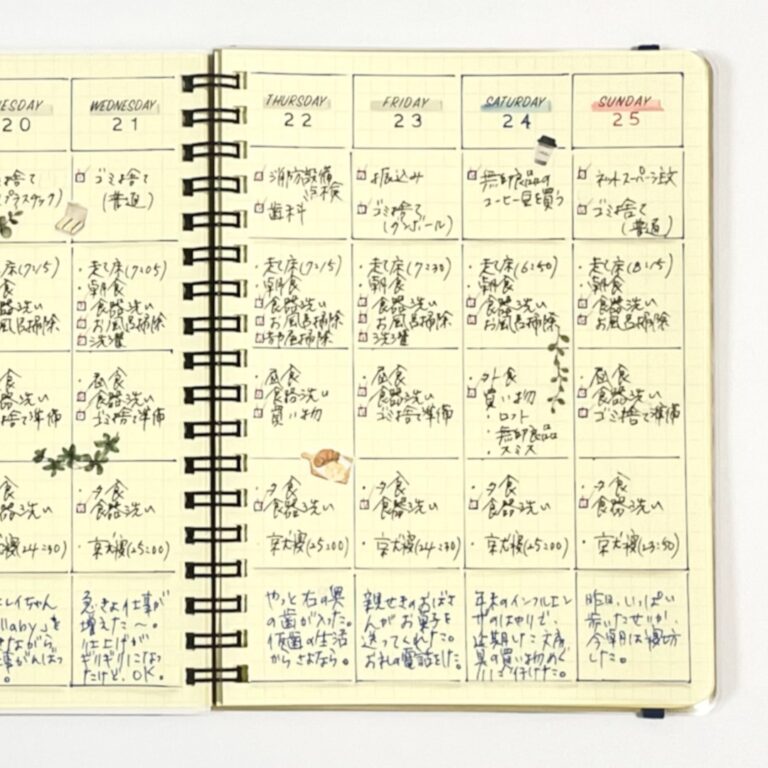 ESDAY
20
WEDNESDAY
21
THURSDAY
22
FRIDAY
23
SATURDAY
24
SUNDAY
25
捨て
プラスチック)
ゴミ捨て
(普通)
消防設備
点検
歯科
お振込み
ゴミ捨て
(ダンボール)
無印良品の
コーヒー豆を買う
ネットスーパー注文
ゴミ捨て
(普通)
床(7:15)
食
器洗い
風呂掃除
・起床(7:05)
・朝食
食器洗い
お風呂掃除
洗濯
・起床(7:15)
・朝食
食器洗い
お風呂掃除
部屋掃除
・起床(7:30)
・朝食
食器洗い
お風呂掃除
洗濯
・起床(6:50)
・朝食
食器洗い
お風呂掃除
・起床(8:15)
・朝食
食器洗い
お風呂掃除
食
器洗い
捨て準備
・昼食
食器洗い
ゴミ捨て準備
・昼食
食器洗い
買い物
・昼食
食器洗い
ゴミ捨て準備
・外食
買い物
・ロフト
・無印良品
・スミス
・昼食
食器洗い
ゴミ捨て準備
食
器洗い
寝(24:30)
・夕食
食器洗い
・就寝(25:00)
・夕食
食器洗い
・就寝(25:00)
・夕食
食器洗い
・就寝(24:30)
・夕食
食器洗い
・就寝(25:00)
・夕食
食器洗い
・就寝(23:50)
レイちゃん
laby」を
きながら
事がんばっ
。
急きょ仕事が
増えた〜。
仕上げが
ギリギリになっ
たけど、OK。
やっと右の奥
の歯が入った。
仮歯の生活
からさよなら。
親せきのおばさ
んがお菓子を
送ってくれた。
お礼の電話をした。
年末のインフルエン
ザのはやりで、
延期した文房
具の買い物めぐ
りに行けた。
昨日、いっぱい
歩いたせいか、
今朝は寝坊
した。